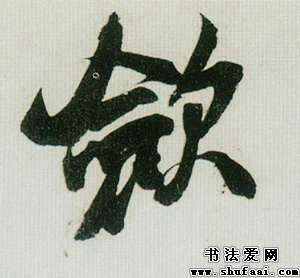 歛
书法爱网
www.shufaai.com